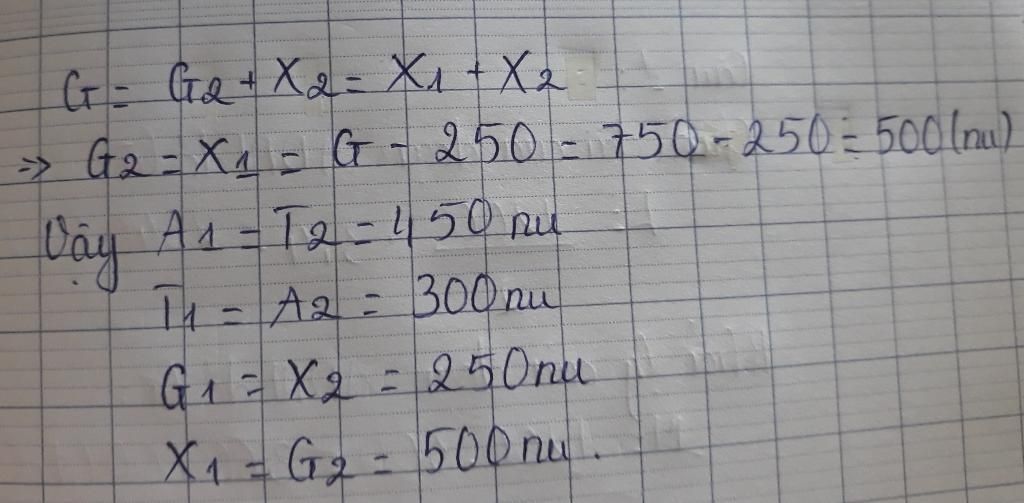 G = G2 + X2 = X1 + X2
=> G2 = X1 = G - 250 = 750 - 250 = 500 (nu)
Vậy A1 = T2 = 450 nu
T1 = A2 = 300 nu
G1 = X2 = 250 nu
X1 = G2 = 500 nu.